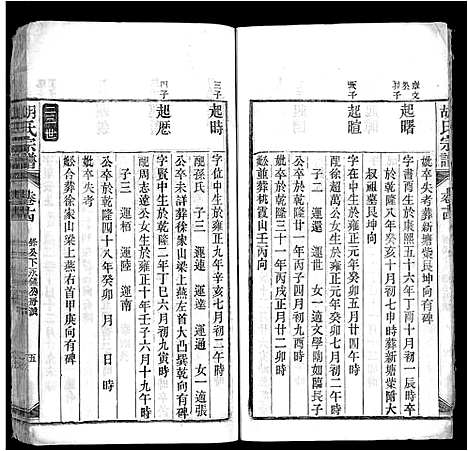 胡氏宗譜
卷十四
起曙
字書酉生於康熙五十六年丁酉十月初一辰時
公卒於乾隆八年癸亥十月初七申時葬新塘柴附大
叔祖墓艮坤向
妣卒失考葬新塘柴艮坤向有碑
長子
起暄
字中生於雍正元年癸卯五月廿四午時
配徐超萬公女生於雍正元年癸卯九月初二午時
子二 運還 運世 女一適文學閔如隨長子
公卒於乾隆廿一年丙子四月初六丑時
妣卒於乾隆三十一年丙戌十月廿二卯時
䒤並葬桃霞山壬丙向
三子
起時
字位中生於雍正九年辛亥十一月初二午時
配孫氏 子三 運速 運達 運通 女一適張
公卒失考葬徐家山梁上燕左首大凸巽乾向有碑
四子
起厯
字賢中生於乾隆二年丁巳六月初九寅時
配周志遠公女生於雍正十年壬子六月十九午時
子三 運栢 運陸 運南
公卒於乾隆四十八年癸卯 月 日 時
妣卒失考
䒤合葬徐家山梁上燕右首甲庚向有碑
三三世
胡氏宗譜
卷十四
五